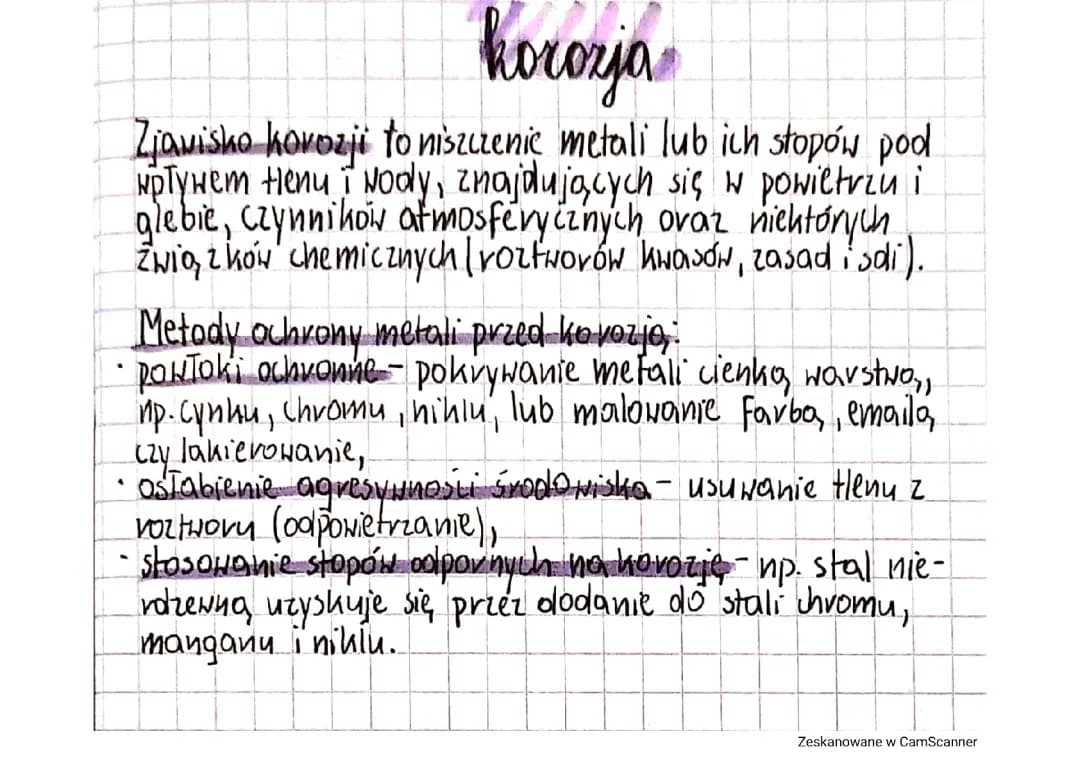 korozja
Zjawisko korozji to niszczenie metali lub ich stopów pod
wpływem tlenu i wody, znajdujących się w powietrzu i
glebie, czynników atmosferycznych oraz niektórych
związków chemicznych (roztworów kwasów, zasad i soli).
Metody ochrony metali przed korozją:
• powłoki ochronne - pokrywanie metali cienką warstwą,
np. cynku, chromu, niklu, lub malowanie farbą, emailą
czy lakierowanie,
• osłabienie agresywności środowiska - usuwanie tlenu z
roztworu (odpowietrzanie),
• stosowanie stopów odpornych na korozję - np. stal nie-
rdzewną uzyskuje się przez dodanie do stali chromu,
manganu i niklu.
Zeskanowane w CamScanner